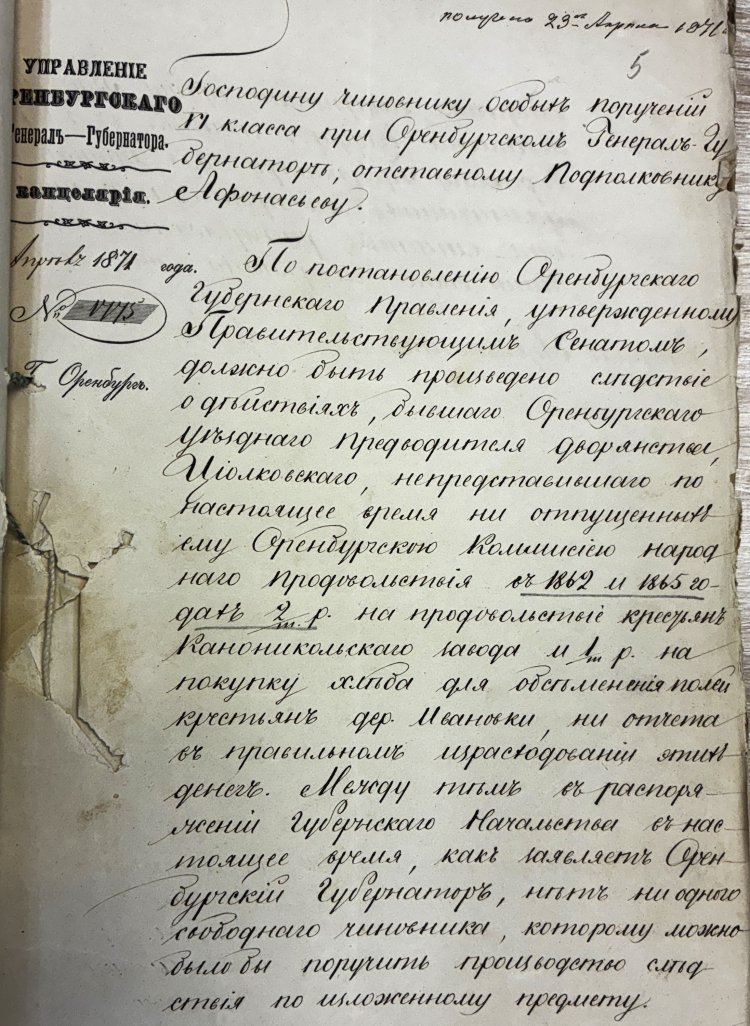 получено 23го Апреля 1871 г.
5
УПРАВЛЕНІЕ
ОРЕНБУРГСКАГО
Генералъ—Губернатора.
Канцелярія.
Апрѣля 1871 года.
№ 1775
Г. Оренбургъ.
Господину чиновнику особыхъ порученій
VI класса при Оренбургскомъ Генералъ-Гу
бернаторѣ, отставному Подполковнику
Афонасьеву.
По постановленію Оренбургскаго
Губернскаго Правленія, утвержденному
Правительствующимъ Сенатомъ,
должно быть произведено слѣдствіе
о дѣйствіяхъ, бывшаго Оренбургскаго
уѣзднаго предводителя дворянства,
Ціолковскаго, непредставившаго по
настоящее время ни отпущенныхъ
ему Оренбургскою Коммисіею народ
наго продовольствія въ 1862 и 1865 го-
дахъ 2/т. р. на продовольствіе крестьянъ
Каноникольскаго завода и 1/т р. на
покупку хлѣба для обсѣмененія полей
крестьянъ дер. Ивановки, ни отчета
въ правильномъ израсходованіи этихъ
денегъ. Между тѣмъ въ распоря-
женіи Губернскаго Начальства въ нас-
тоящее время, какъ заявляетъ Орен-
бургскій Губернаторъ, нѣтъ ни одного
свободнаго чиновника, которому можно
было бы поручить производство слѣд
ствія по изложенному предмету.